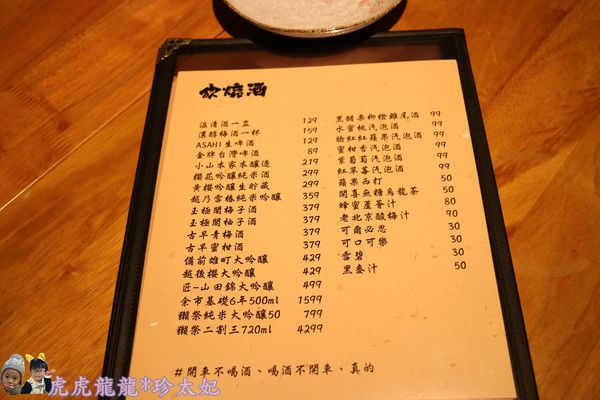 炊燒酒
溫清酒一盅 129
濃醇梅酒一杯 159
ASAHI生啤酒 129
金牌台灣啤酒 89
小山本家本釀造 219
櫻花吟釀純米酒 299
黃櫻吟釀生貯藏 379
越乃雪椿純米吟釀 359
玉極閣梅子酒 379
玉極閣柚子酒 379
古早青梅酒 379
古早蜜柑酒 379
備前雄町大吟釀 429
越後櫻大吟釀 429
匠-山田錦大吟釀 499
余市基礎6年500ml 1599
獺祭純米大吟釀50 799
獺祭二割三720ml 4299
黑醋栗柳橙雞尾酒 99
水蜜桃汽泡酒 99
臉紅紅蘋果汽泡酒 99
蜜柑香汽泡酒 99
紫葡萄汽泡酒 99
紅草莓汽泡酒 99
蘋果西打 50
開喜無糖烏龍茶 50
蜂蜜蘆薈汁 80
老北京酸梅汁 90
可爾必思 30
可口可樂 30
雪碧 30
黑麥汁 50
#開車不喝酒、喝酒不開車，真的
虎虎龍龍*珍太妃